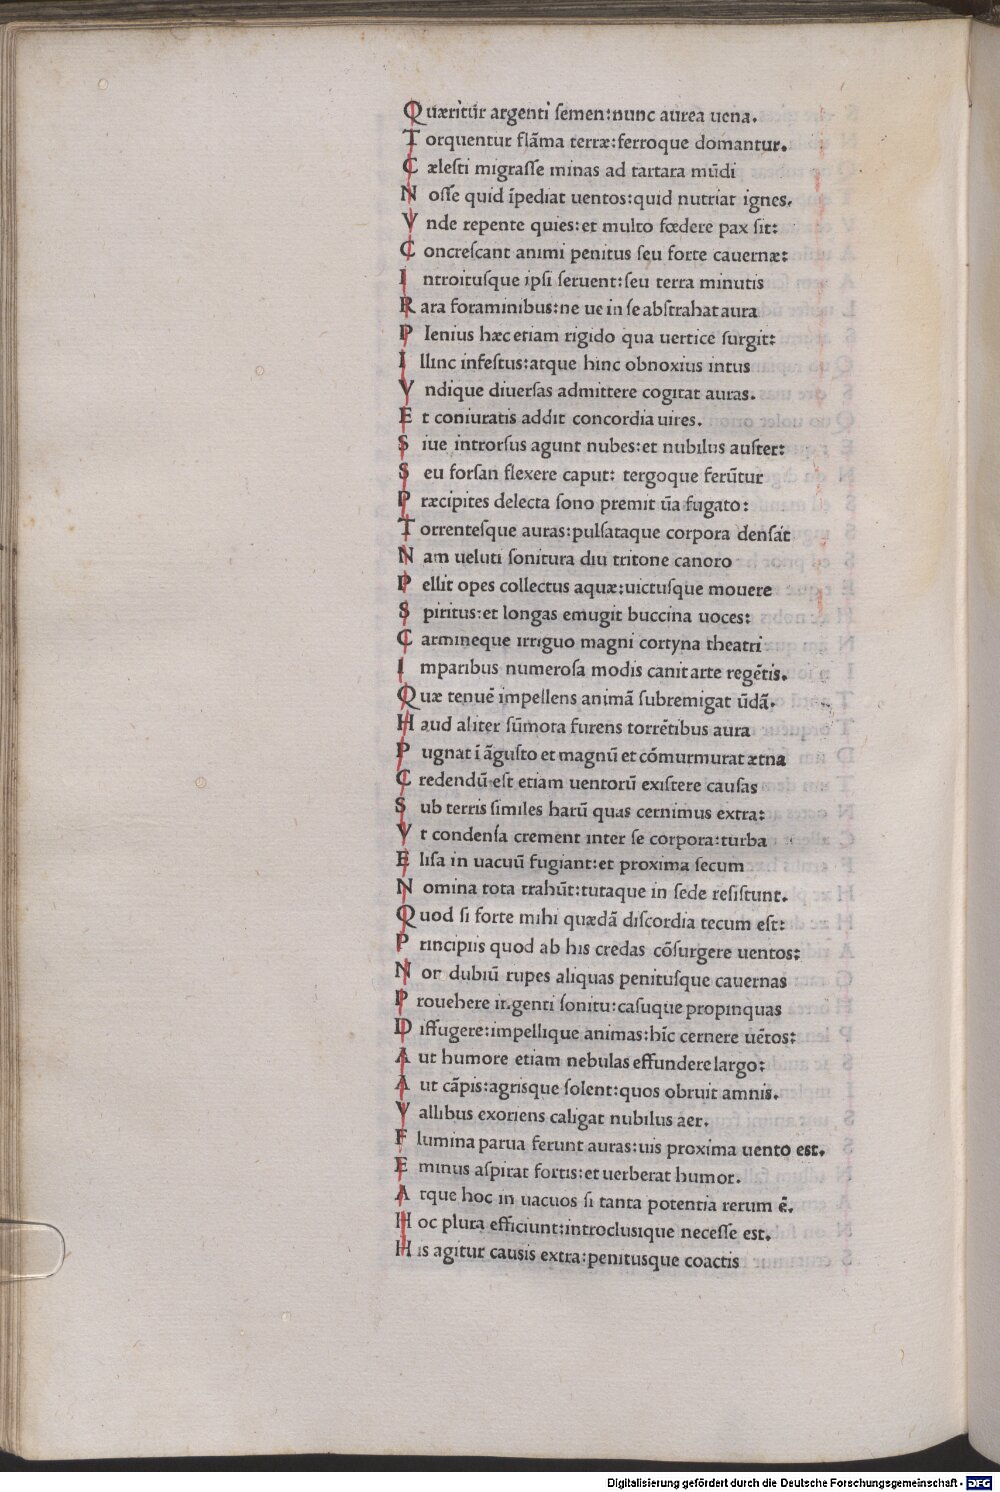 Quæritur argenti ſemen:nunc aurea uena.
Torquentur flāma terræ:ferroque domantur.
Cæleſti migraſſe minas ad tartara mūdi
Noſſe quid īpediat uentos:quid nutriat ignes.
Vnde repente quies:et multo fœdere pax ſit:
Concreſcant animi penitus ſeu forte cauernæ:
Introituſque ipſi ſeruent:ſeu terra minutis
Rara foraminibus:ne ue in ſe abſtrahat aura
Plenius hæc etiam rigido qua uertice ſurgit:
Illinc infeſtus:atque hinc obnoxius intus
Vndique diuerſas admittere cogitat auras.
Et coniuratis addit concordia uires.
Siue introrſus agunt nubes:et nubilus auſter:
Seu forſan flexere caput: tergoque ferūtur
Præcipites delecta ſono premit ūa fugato:
Torrenteſque auras:pulſataque corpora denſāt
Nam ueluti ſonitura diu tritone canoro
Pellit opes collectus aquæ:uictuſque mouere
Spiritus:et longas emugit buccina uoces:
Carmineque irriguo magni cortyna theatri
Imparibus numeroſa modis canit arte regētis.
Quæ tenuē impellens animā ſubremigat ūdā.
Haud aliter ſūmota furens torrētibus aura
Pugnat ī āguſto et magnū et cōmurmurat ætna
Credendū eſt etiam uentorū exiſtere cauſas
Sub terris ſimiles harū quas cernimus extra:
Vt condenſa crement inter ſe corpora:turba
Eliſa in uacuū fugiant:et proxima ſecum
Nomina tota trahūt:tutaque in ſede reſiſtunt.
Quod ſi forte mihi quædā diſcordia tecum eſt:
Principiis quod ab his credas cōſurgere uentos:
Non dubiū rupes aliquas penituſque cauernas
Prouehere ingenti ſonitu:caſuque propinquas
Diffugere:impellique animas:hīc cernere uētos:
Aut humore etiam nebulas effundere largo:
Aut cāpis:agriſque ſolent:quos obruit amnis.
Vallibus exoriens caligat nubilus aer.
Flumina parua ferunt auras:uis proxima uento est.
Eminus aſpirat fortis:et uerberat humor.
Atque hoc in uacuos ſi tanta potentia rerum ē.
Hoc plura efficiunt:introcluſique neceſſe est.
His agitur causis extra:penitusque coactis
Digitalisierung gefördert durch die Deutsche Forschungsgemeinschaft - DFG